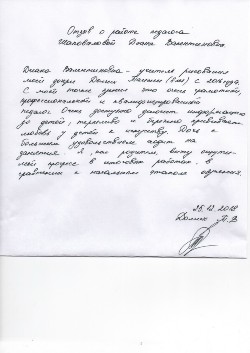 Отзыв о работе педагога
Шаповаловой Дианы Валентиновны
Диана Валентиновна - учитель рисования
моей дочери Долины с 2016 года.
С моей точки зрения это очень грамотный,
профессиональный и квалифицированный
педагог. Очень доступно доносит информацию
до детей, терпеливо и бережно прививает
любовь у детей к искусству. Дочь с
большим удовольствием ходит на
занятия. Я, как родитель, вижу ощутимый
прогресс в итоговых работах, в
сравнении с начальным этапом обучения.
25.12.2018